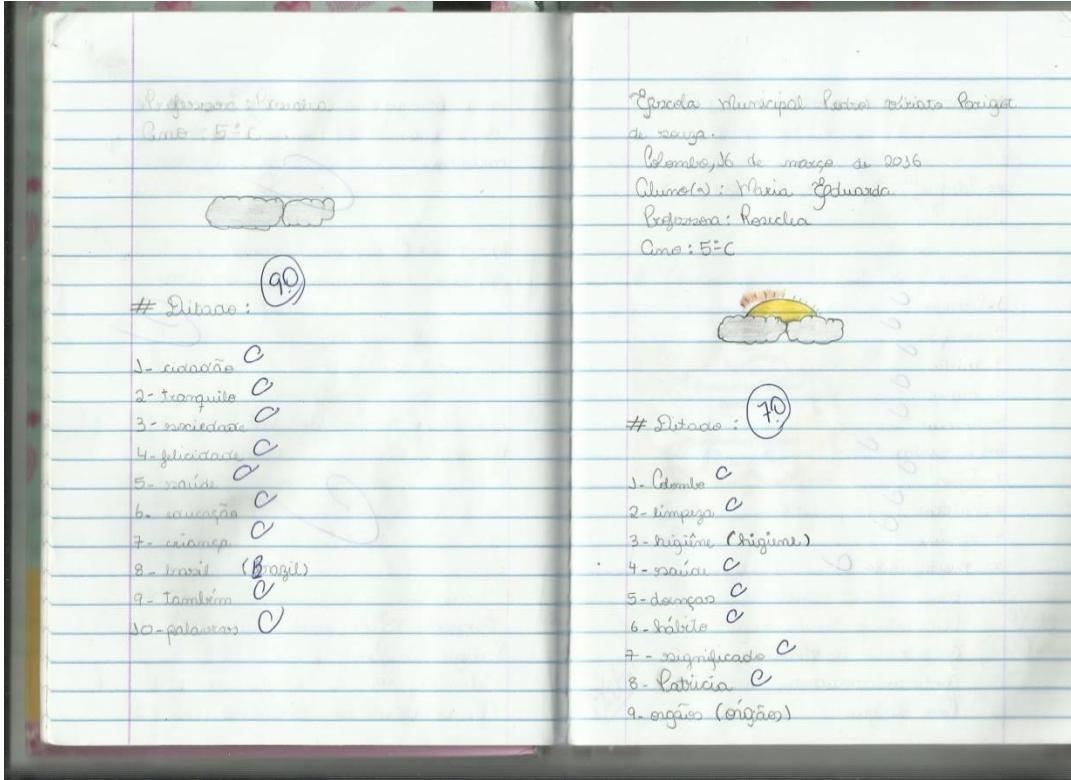 Professora: Rosiclia
Ano: 5º C
90
# Ditado:
1- cidadão C
2- tranquilo C
3- sociedade C
4- felicidade C
5- saúde C
6- educação C
7- criança C
8- brasil (Brazil)
9- também C
10- palavras C
Escola Municipal Pedro Viriato Parigot
de souza.
Colombo, 16 de março de 2016
Aluno(a): Maria Eduarda
Professora: Rosiclia
Ano: 5º C
70
# Ditado:
1- Colombo C
2- limpeza C
3- higiêne (higiene)
4- saúde C
5- doenças C
6- hábito C
7- significado C
8- Patrícia C
9- orgãos (órgãos)